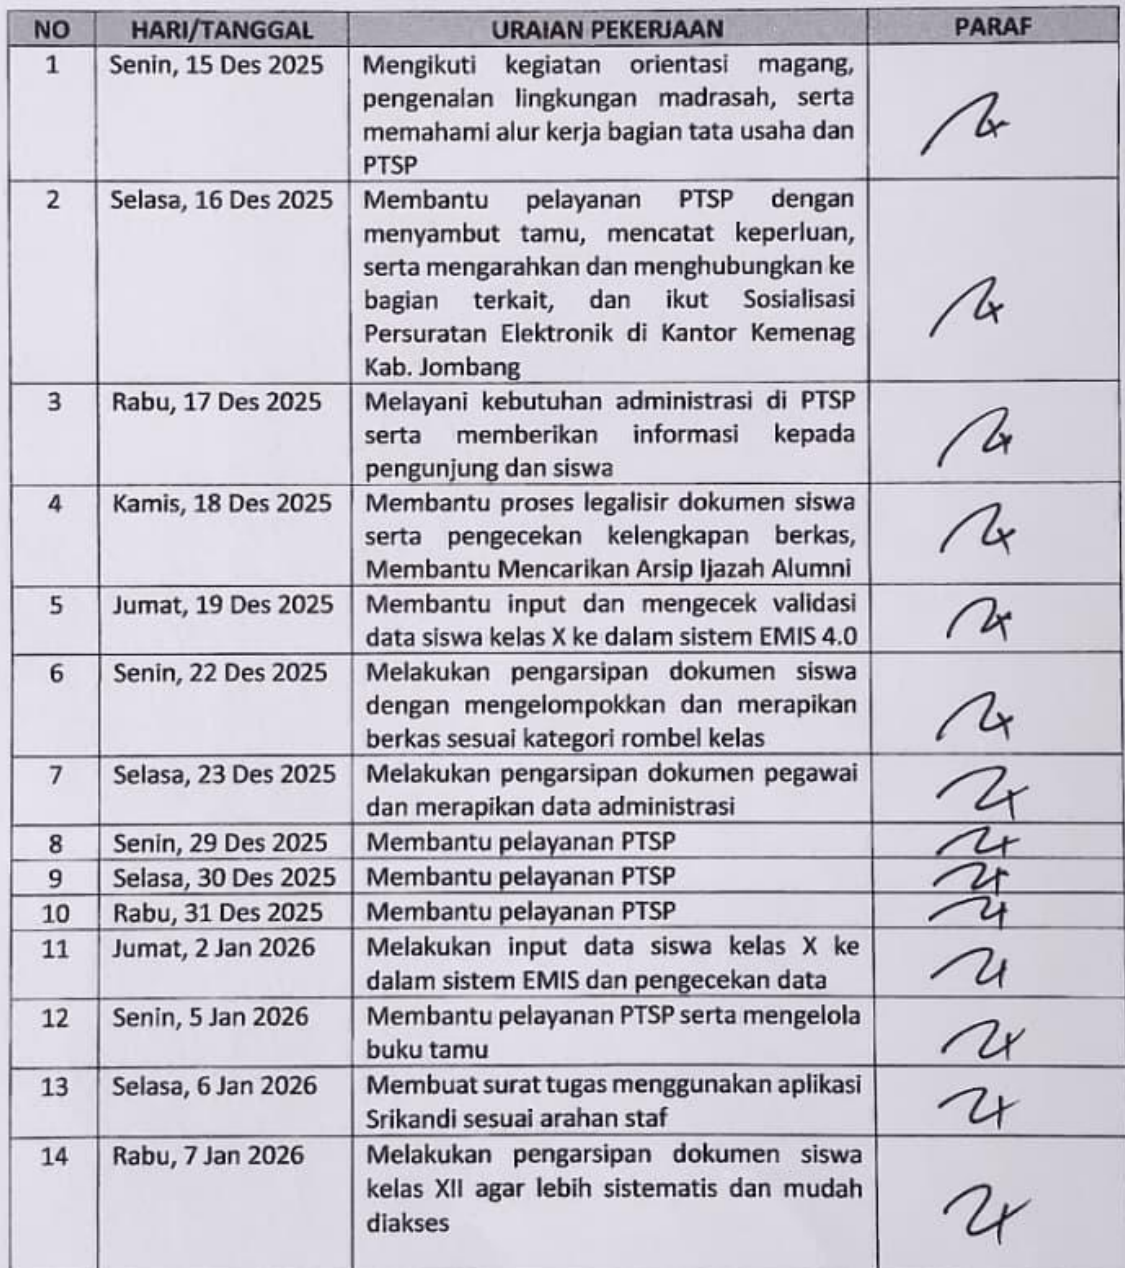 NO HARI/TANGGAL URAIAN PEKERJAAN PARAF
1 Senin, 15 Des 2025 Mengikuti kegiatan orientasi magang,
pengenalan lingkungan madrasah, serta
memahami alur kerja bagian tata usaha dan
PTSP
2 Selasa, 16 Des 2025 Membantu pelayanan PTSP dengan
menyambut tamu, mencatat keperluan,
serta mengarahkan dan menghubungkan ke
bagian terkait, dan ikut Sosialisasi
Persuratan Elektronik di Kantor Kemenag
Kab. Jombang
3 Rabu, 17 Des 2025 Melayani kebutuhan administrasi di PTSP
serta memberikan informasi kepada
pengunjung dan siswa
4 Kamis, 18 Des 2025 Membantu proses legalisir dokumen siswa
serta pengecekan kelengkapan berkas,
Membantu Mencarikan Arsip Ijazah Alumni
5 Jumat, 19 Des 2025 Membantu input dan mengecek validasi
data siswa kelas X ke dalam sistem EMIS 4.0
6 Senin, 22 Des 2025 Melakukan pengarsipan dokumen siswa
dengan mengelompokkan dan merapikan
berkas sesuai kategori rombel kelas
7 Selasa, 23 Des 2025 Melakukan pengarsipan dokumen pegawai
dan merapikan data administrasi
8 Senin, 29 Des 2025 Membantu pelayanan PTSP
9 Selasa, 30 Des 2025 Membantu pelayanan PTSP
10 Rabu, 31 Des 2025 Membantu pelayanan PTSP
11 Jumat, 2 Jan 2026 Melakukan input data siswa kelas X ke
dalam sistem EMIS dan pengecekan data
12 Senin, 5 Jan 2026 Membantu pelayanan PTSP serta mengelola
buku tamu
13 Selasa, 6 Jan 2026 Membuat surat tugas menggunakan aplikasi
Srikandi sesuai arahan staf
14 Rabu, 7 Jan 2026 Melakukan pengarsipan dokumen siswa
kelas XII agar lebih sistematis dan mudah
diakses